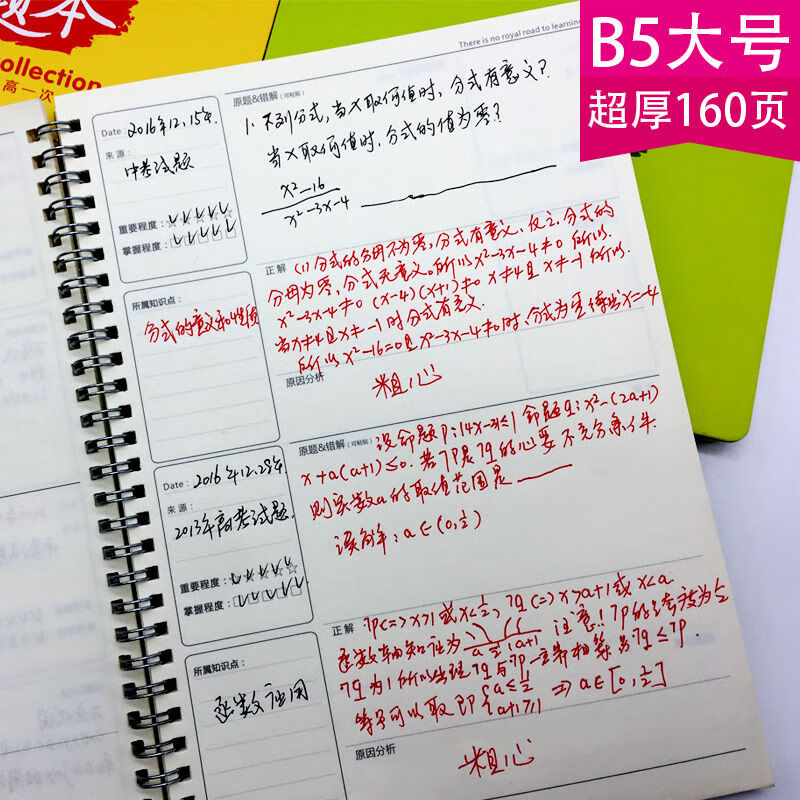 B5大号
超厚160页
题本
ollection
高一次
There is no royal road to learning
原题&错解(可粘贴)
Date: 2016年12.15年.
来源:
中考试题
重要程度:
掌握程度:
1. 下列分式,当x取何值时,分式有意义?
当x取何值时,分式的值为零?
x²-16
x²-3x-4
所属知识点:
分式的意义和性质
正解 (1)分式的分母不为零,分式有意义,反之,分式的
分母为零,分式无意义。所以x²-3x-4≠0 所以
x²-3x-4≠0 (x-4)(x+1)≠0 x≠4且x≠-1 所以
当x≠4且x≠-1时分式有意义.
所以x²-16=0且x²-3x-4≠0时,分式为零得出x=-4
原因分析
粗心
原题&错解(可粘贴)
设命题P:|4x-3|≤1 命题q:x²-(2a+1)
x+a(a+1)≤0. 若¬P是¬q的必要不充分条件.
则实数a的取值范围是
误解:a∈(0,½)
Date: 2016年12.29年
来源:
2013年高考试题.
重要程度:
掌握程度:
所属知识点:
逆数应用
正解 ¬P<=>x>1或x<½, ¬q<=>x>a+1或x<a
a ½ 1 a+1 注意!¬P的
¬q为1所以出现¬q与¬P
等号可以取即{a≤½
a+1≥1 => a∈[0,½]
原因分析
粗心